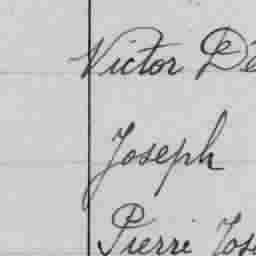 Victor De
Joseph
Pierre Jos